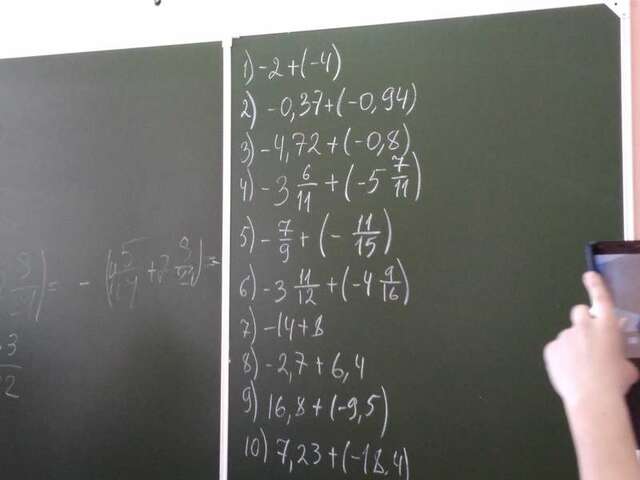 1) -2 + (-4)
2) -0,37 + (-0,94)
3) -4,72 + (-0,8)
4) -3 6/11 + (-5 7/11)
5) -7/9 + (-11/15)
6) -3 11/12 + (-4 9/16)
7) -14 + 8
8) -2,7 + 6,4
9) 16,8 + (-9,5)
10) 7,23 + (-18,4)